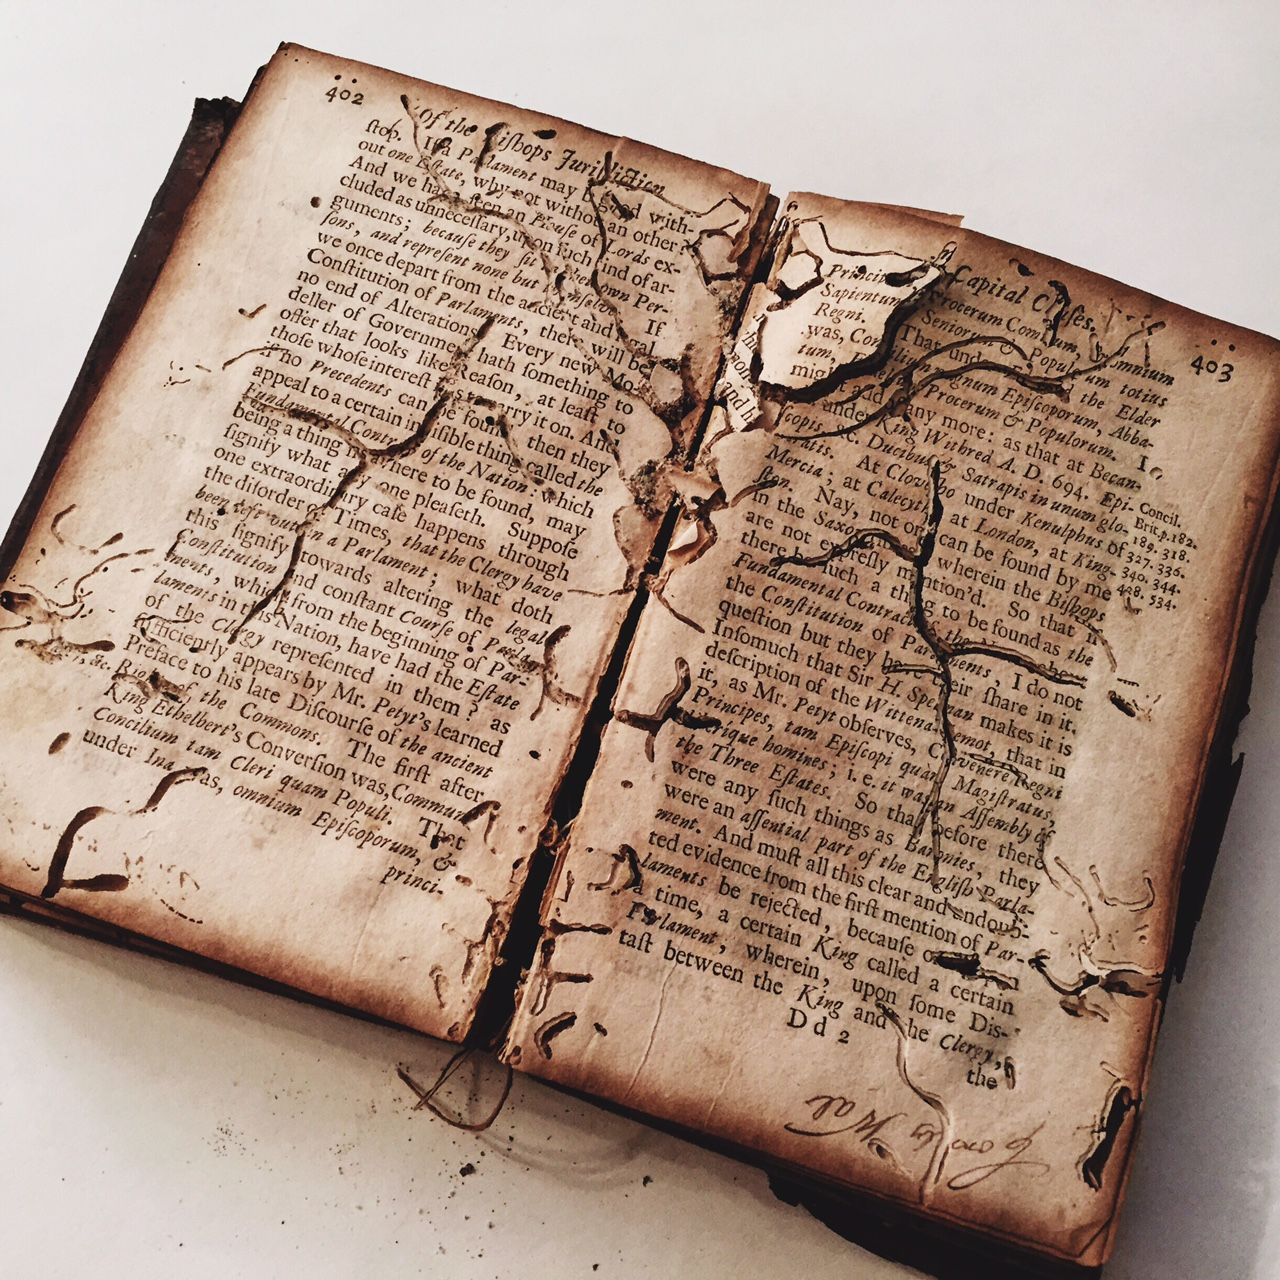 402
Of the Bishops Juriſdiction
ſtop. If a Parlament may be good with-
out one Eſtate, why not without an other?
And we have ſeen an Houſe of Lords ex-
cluded as unneceſſary, upon ſuch kind of ar-
guments; becauſe they ſit their own Per-
ſons, and repreſent none but themſelves. If
we once depart from the ancient and legal
Conſtitution of Parlaments, there will be
no end of Alterations. Every new Mo-
deller of Government hath ſomething to
offer that looks like Reaſon, at leaſt to
thoſe whoſe intereſt it is to carry it on. And
if no Precedents can be found, then they
appeal to a certain inviſible thing called the
Fundamental Contract of the Nation: which
being a thing no where to be found, may
ſignify what any one pleaſeth. Suppoſe
one extraordinary caſe happens through
the diſorder of Times, that the Clergy have
been left out in a Parlament; what doth
this ſignify towards altering the legal
Conſtitution and conſtant Courſe of Parla-
ments, which from the beginning of Par-
laments in this Nation, have had the Eſtate
of the Clergy repreſented in them? as
ſufficiently appears by Mr. Petyt's learned
Preface to his late Diſcourſe of the ancient
Rights of the Commons. The firſt after
King Ethelbert's Converſion was, Commune
Concilium tam Cleri quam Populi. That
under Ina was, omnium Epiſcoporum, &
princi-
in Capital Caſes.
403
Princip
Procerum Comitum, & omnium
Sapientum, Seniorum & Populorum totius
Regni. That under the Elder
was, Concilium magnum Epiſcoporum, Abba-
tum, Procerum & Populorum. I
might add many more: as that at Becan-
under King Withred A. D. 694. Epi-
ſcopis, &c. Ducibus & Satrapis in unum glo-
ratis. At Cloveſho under Kenulphus of
Mercia; at Calecyth, at London, at King-
ſton. Nay, not one can be found by me
in the Saxon wherein the Biſhops
are not expreſly mention'd. So that if
there be ſuch a thing to be found as the
Fundamental Contract
the Conſtitution of Parlaments, I do not
queſtion but they have their ſhare in it.
Inſomuch that Sir H. Spelman makes it is
deſcription of the Wittena Gemot, that in
it, as Mr. Petyt obſerves, Convenere Regni
Principes, tam Epiſcopi quam Magiſtratus,
liberique homines; i.e. it was an Aſſembly of
the Three Eſtates. So that before there
were any ſuch things as Baronies, they
were an aſſential part of the Engliſh Parla-
ment. And muſt all this clear and undoub-
ted evidence from the firſt mention of Par-
laments be rejected, becauſe once upon
a time, a certain King called a certain
Parlament, wherein, upon ſome Diſ-
taſt between the King and the Clergy,
Dd 2
the
Concil.
Brit. p. 182.
189. 318.
327. 336.
340. 344.
428. 534.